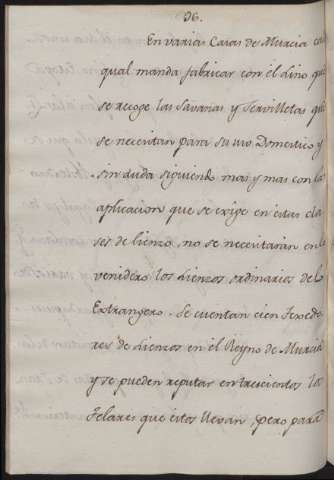 96.
En varias Casas de Murcia cada
qual manda fabricar con el lino que
se recoge las Savanas y Servilletas que
se necesitan para su uso Domestico y
sin duda siguiendo mas y mas con la
aplicacion que se exige en estas cla-
ses de lienzo, no se necesitarán en lo
venidero los lienzos ordinarios del
Extrangero. Se cuentan cien Texedo-
res de lienzos en el Reyno de Murcia
y se pueden reputar en trecientos los
Telares que estos llevan, pero para